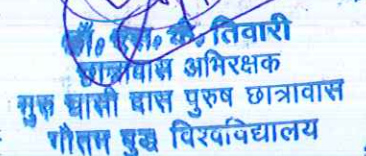 डॉ० एस० के० तिवारी
छात्रावास अभिरक्षक
गुरु घासी दास पुरुष छात्रावास
गौतम बुद्ध विश्वविद्यालय